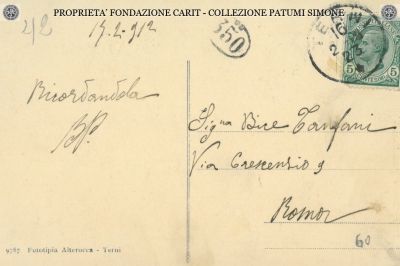 PROPRIETA' FONDAZIONE CARIT - COLLEZIONE PATUMI SIMONE
4/2
15.2.912
350
Ricordandola
BP.
Sig.na Bice
Via Crescenzio 9
Roma
60
5
9787 Fototipia Alterocca - Terni